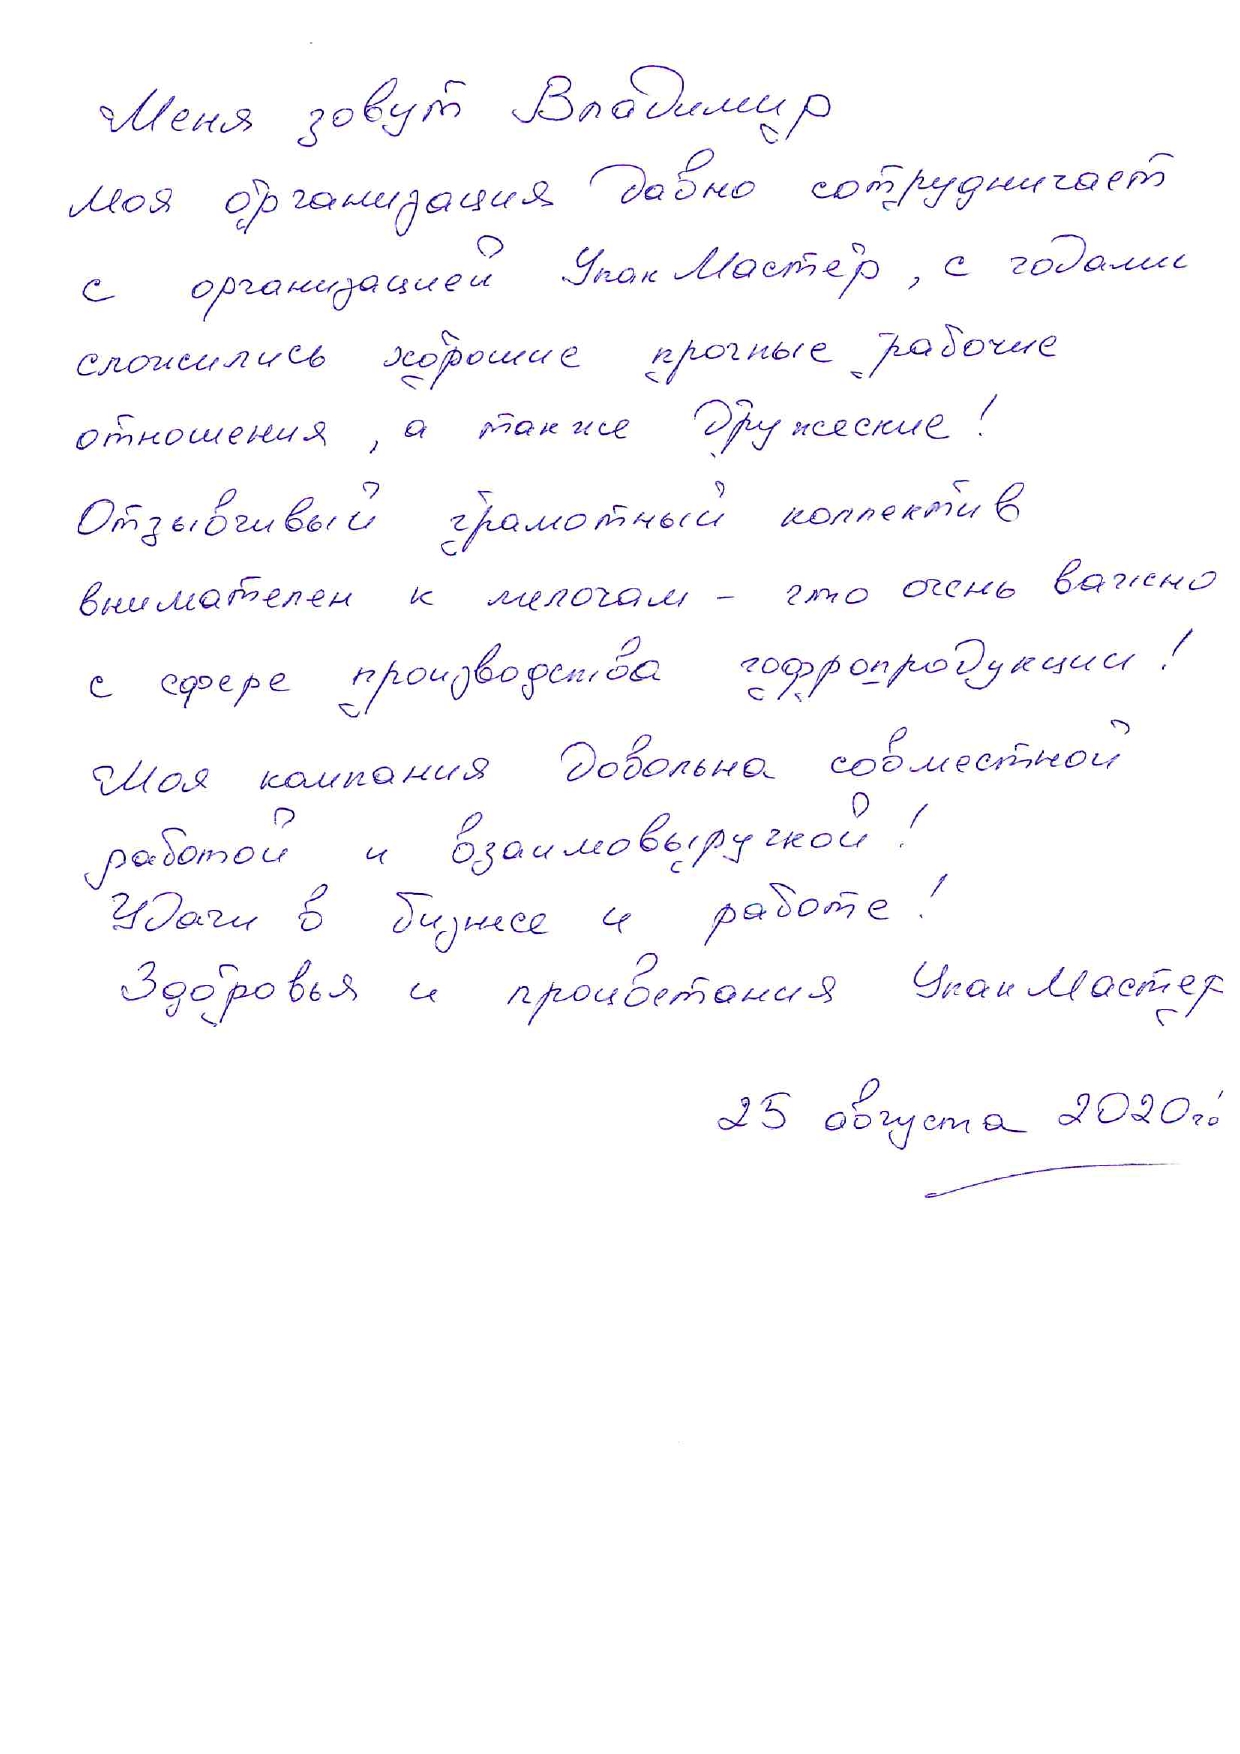 Меня зовут Владимир
моя организация давно сотрудничает
с организацией УпакМастер, с годами
сложились хорошие прочные рабочие
отношения, а также дружеские!
Отзывчивый грамотный коллектив
внимателен к мелочам - что очень важно
с сфере производства гофропродукции!
Моя компания довольна совместной
работой и взаимовыручкой!
Удачи в бизнесе и работе!
Здоровья и процветания УпакМастер
25 августа 2020г.